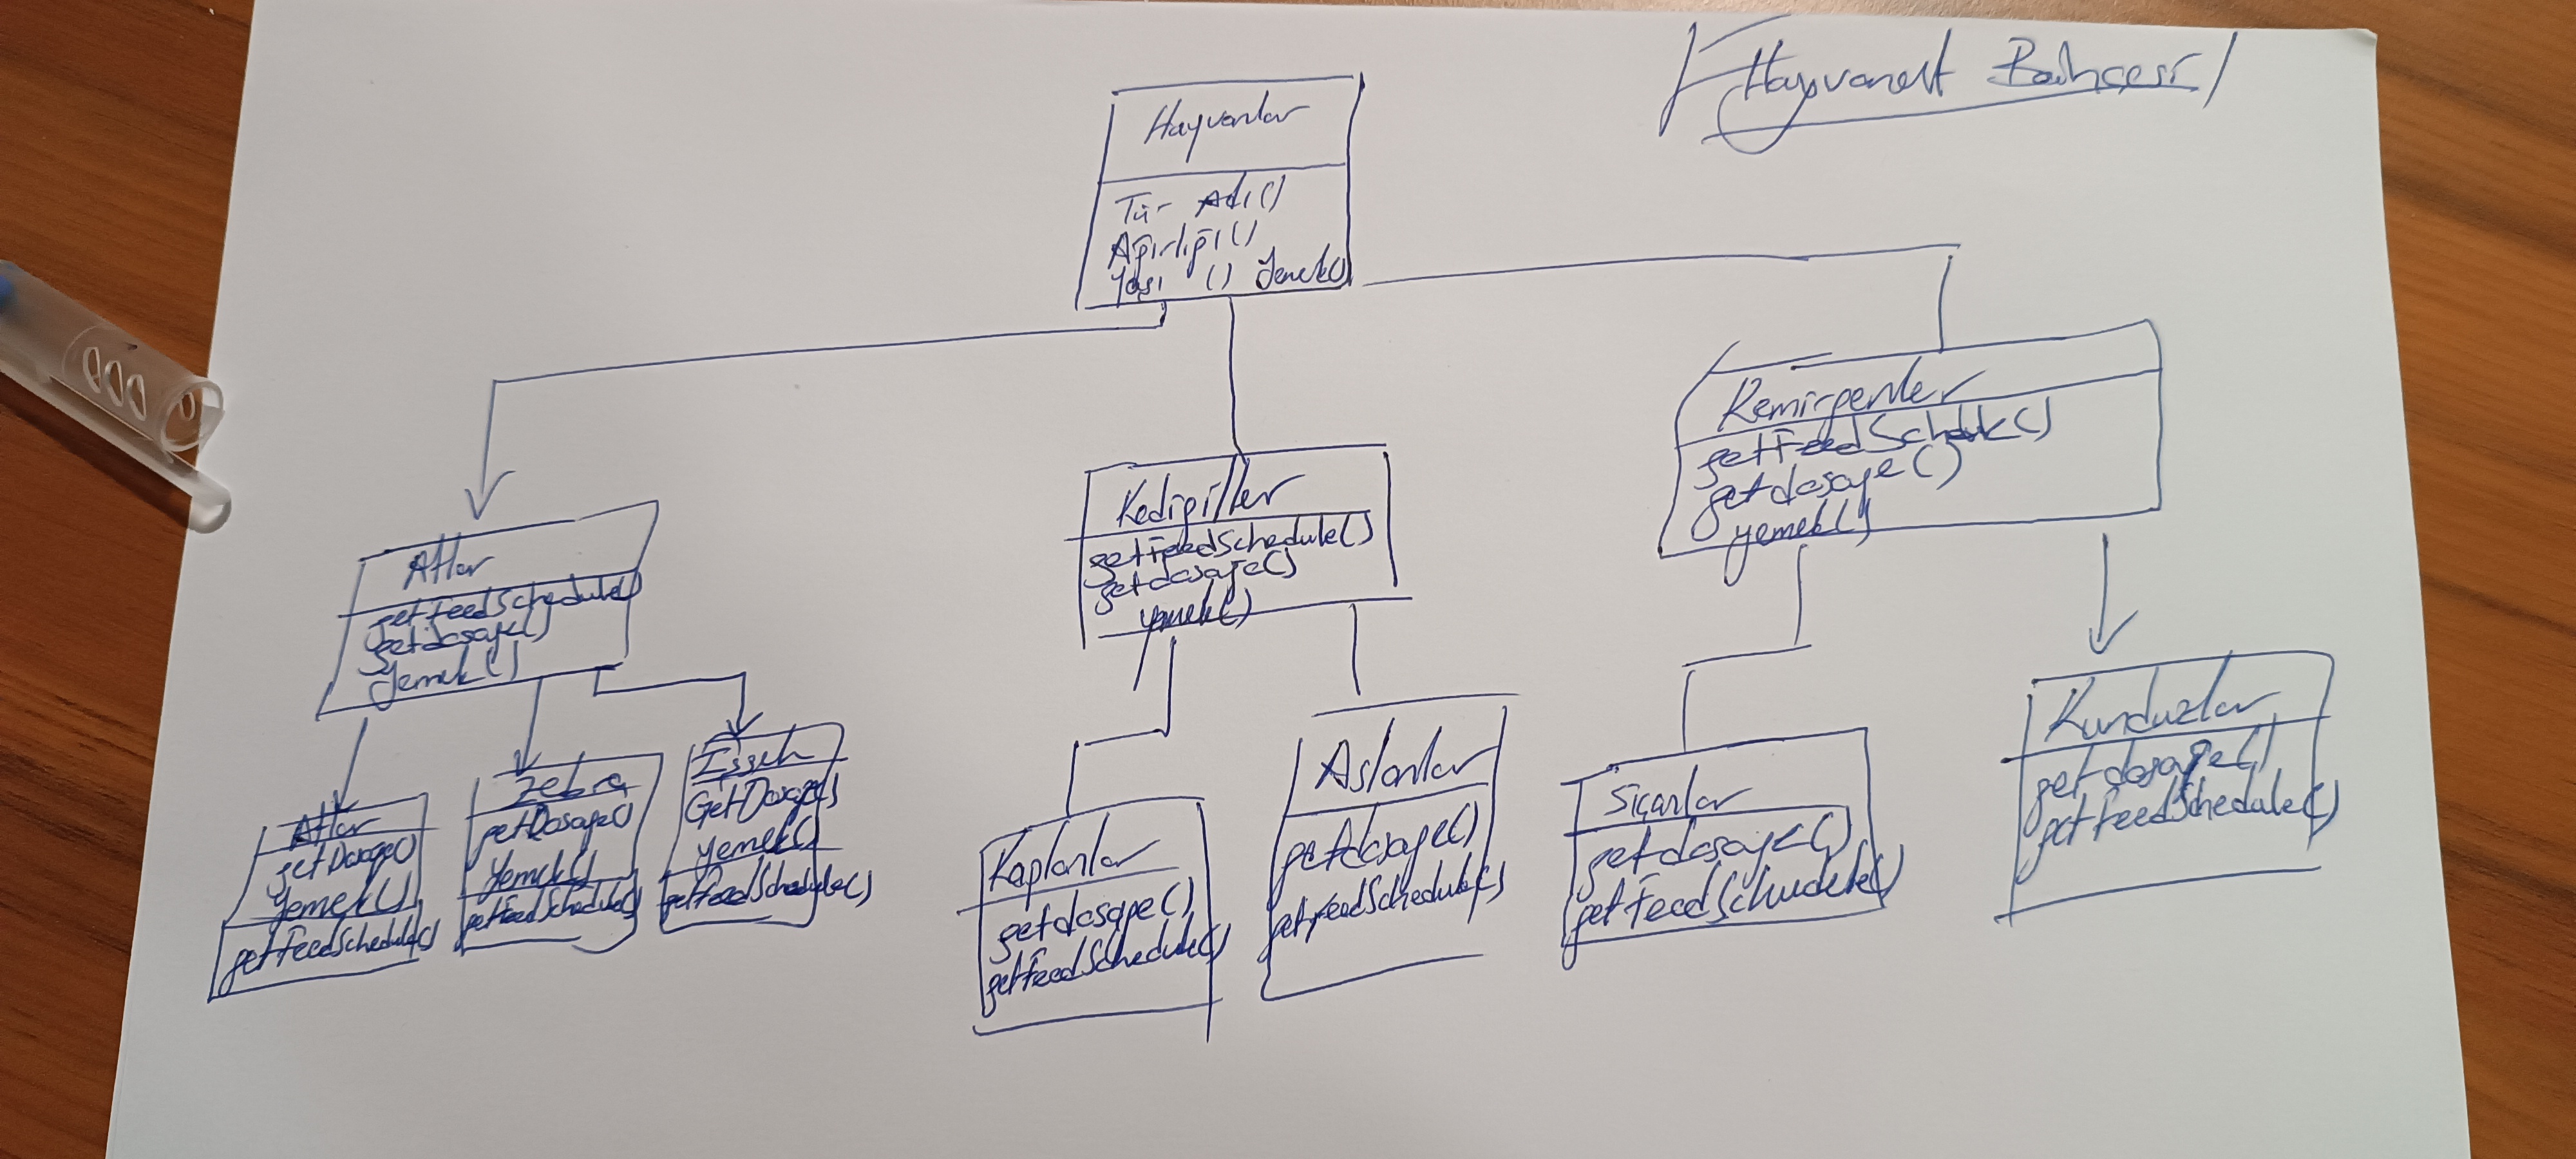 Hayvanat Bahçesi
Hayvanlar
Tür Adı()
Ağırlığı()
Yaşı () Yemek()
Atlar
getFeedSchedule()
getdosage()
Yemek()
Kedigiller
getFeedSchedule()
getdosage()
yemek()
Kemirgenler
getFeedSchedule()
getdosage()
yemek()
Atlar
getDosage()
Yemek()
getFeedSchedule()
Zebra
getDosage()
Yemek()
getFeedSchedule()
Eşşek
GetDosage()
yemek()
getFeedSchedule()
Kaplanlar
getdosage()
getFeedSchedule()
Aslanlar
getdosage()
getFeedSchedule()
Sıçanlar
getdosage()
getFeedSchudele()
Kunduzlar
getdosage()
getFeedSchedule()